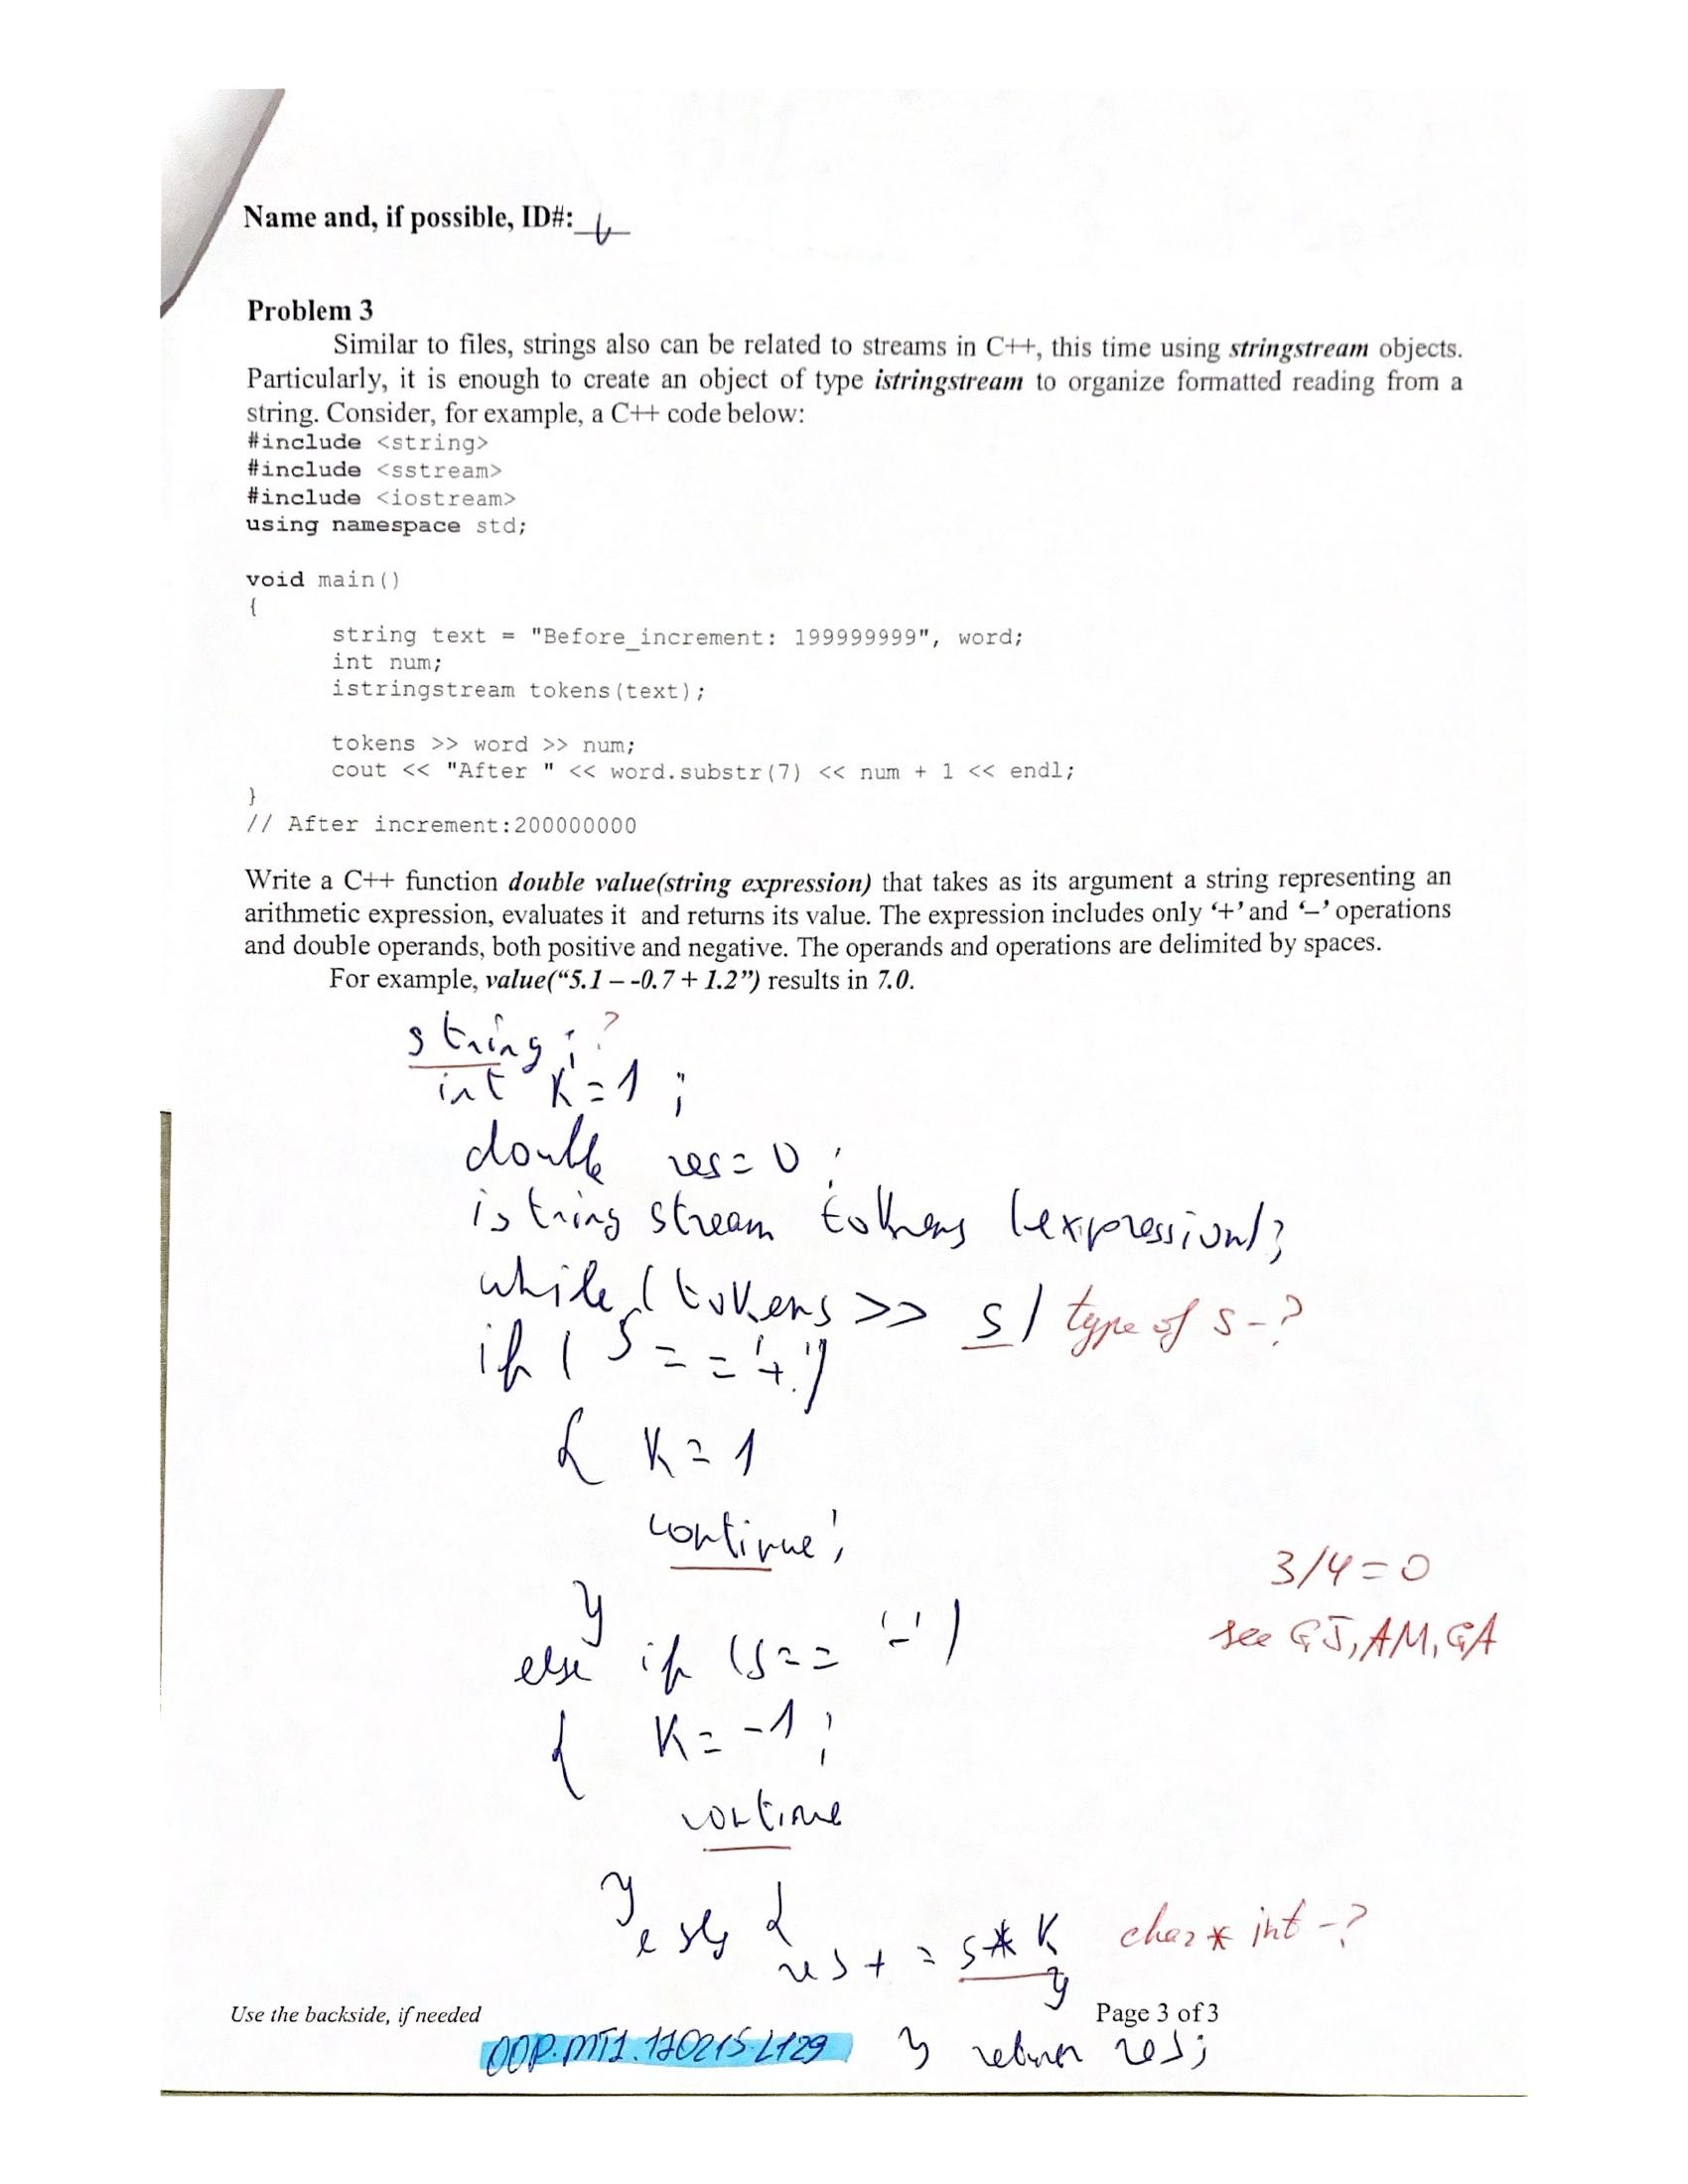 Name and, if possible, ID#:
Problem 3
Similar to files, strings also can be related to streams in C++, this time using stringstream objects.
Particularly, it is enough to create an object of type istringstream to organize formatted reading from a
string. Consider, for example, a C++ code below:
#include <string>
#include <sstream>
#include <iostream>
using namespace std;
void main()
{
string text = "Before_increment: 199999999", word;
int num;
istringstream tokens(text);
tokens >> word >> num;
cout << "After " << word.substr(7) << num + 1 << endl;
}
// After increment:200000000
Write a C++ function double value(string expression) that takes as its argument a string representing an
arithmetic expression, evaluates it and returns its value. The expression includes only ‘+’ and ‘–’ operations
and double operands, both positive and negative. The operands and operations are delimited by spaces.
For example, value(“5.1 – -0.7 + 1.2”) results in 7.0.
string ; ?
int K=1 ;
double res=0 ;
istring stream tokens (expression);
while (tokens >> s) type of s-?
if ( s == '+')
{ K=1
continue;
}
3/4=0
else if (s== '-') see GJ, AM, GA
{ K= -1 ;
continue
}
else {
res += s*K char * int -?
}
Use the backside, if needed
Page 3 of 3
OOP.MT1.170215.L129
} return res;